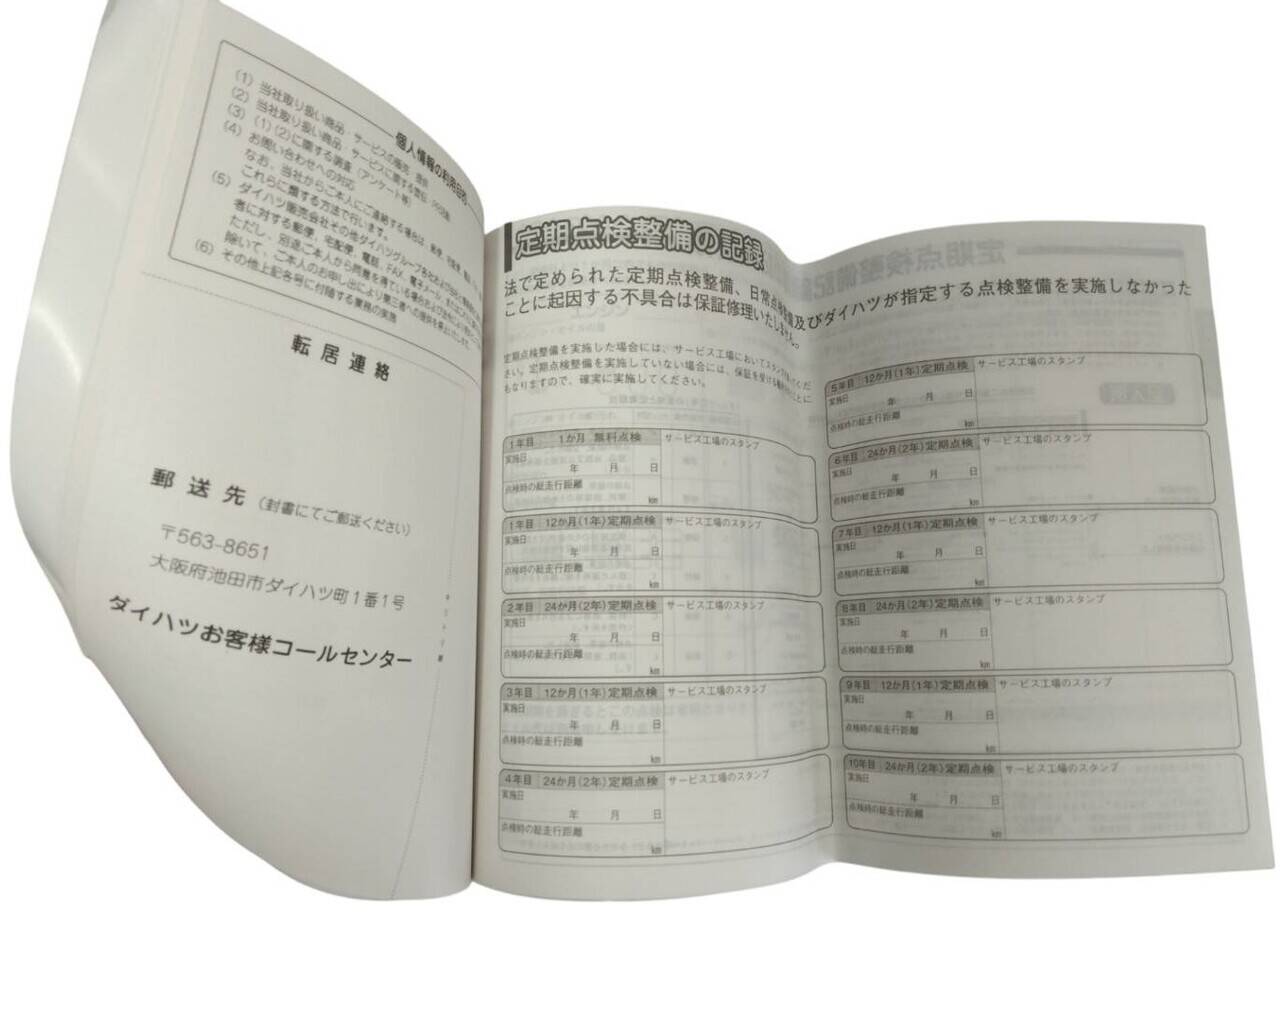 個人情報の利用目的
(1) 当社取り扱い商品・サービスの販売、提供
(2) 当社取り扱い商品・サービスに関する
(3) (1)(2)に関する調査（アンケート等）
(4) お問い合わせへの対応
なお、当社からご本人にご連絡する場合は、郵便、宅配便、電話、
これらに類する方法で行います。
(5) ダイハツ販売会社その他ダイハツグループ各社および
者に対する郵便、宅配便、電話、FAX、電子メール
ただし、別途ご本人から同意を得ている場合および法令により
除いて、ご本人のお申し出により第三者への提供を停止いたします。
(6) その他上記各号に付随する業務の実施
転居連絡
郵送先（封書にてご郵送ください）
〒563-8651
大阪府池田市ダイハツ町1番1号
ダイハツお客様コールセンター
定期点検整備の記録
法で定められた定期点検整備、日常点検整備及びダイハツが指定する点検整備を実施しなかった
ことに起因する不具合は保証修理いたしません。
定期点検整備を実施した場合には、サービス工場においてスタンプを
さい。定期点検整備を実施していない場合には、保証を受ける
もなりますので、確実に実施してください。
1年目 1か月 無料点検 サービス工場のスタンプ
実施日
年 月 日
点検時の総走行距離
km
1年目 12か月(1年)定期点検 サービス工場のスタンプ
実施日
年 月 日
点検時の総走行距離
km
2年目 24か月(2年)定期点検 サービス工場のスタンプ
実施日
年 月 日
点検時の総走行距離
km
3年目 12か月(1年)定期点検 サービス工場のスタンプ
実施日
年 月 日
点検時の総走行距離
km
4年目 24か月(2年)定期点検 サービス工場のスタンプ
実施日
年 月 日
点検時の総走行距離
km
5年目 12か月(1年)定期点検 サービス工場のスタンプ
実施日
年 月 日
点検時の総走行距離
km
6年目 24か月(2年)定期点検 サービス工場のスタンプ
実施日
年 月 日
点検時の総走行距離
km
7年目 12か月(1年)定期点検 サービス工場のスタンプ
実施日
年 月 日
点検時の総走行距離
km
8年目 24か月(2年)定期点検 サービス工場のスタンプ
実施日
年 月 日
点検時の総走行距離
km
9年目 12か月(1年)定期点検 サービス工場のスタンプ
実施日
年 月 日
点検時の総走行距離
km
10年目 24か月(2年)定期点検 サービス工場のスタンプ
実施日
年 月 日
点検時の総走行距離
km